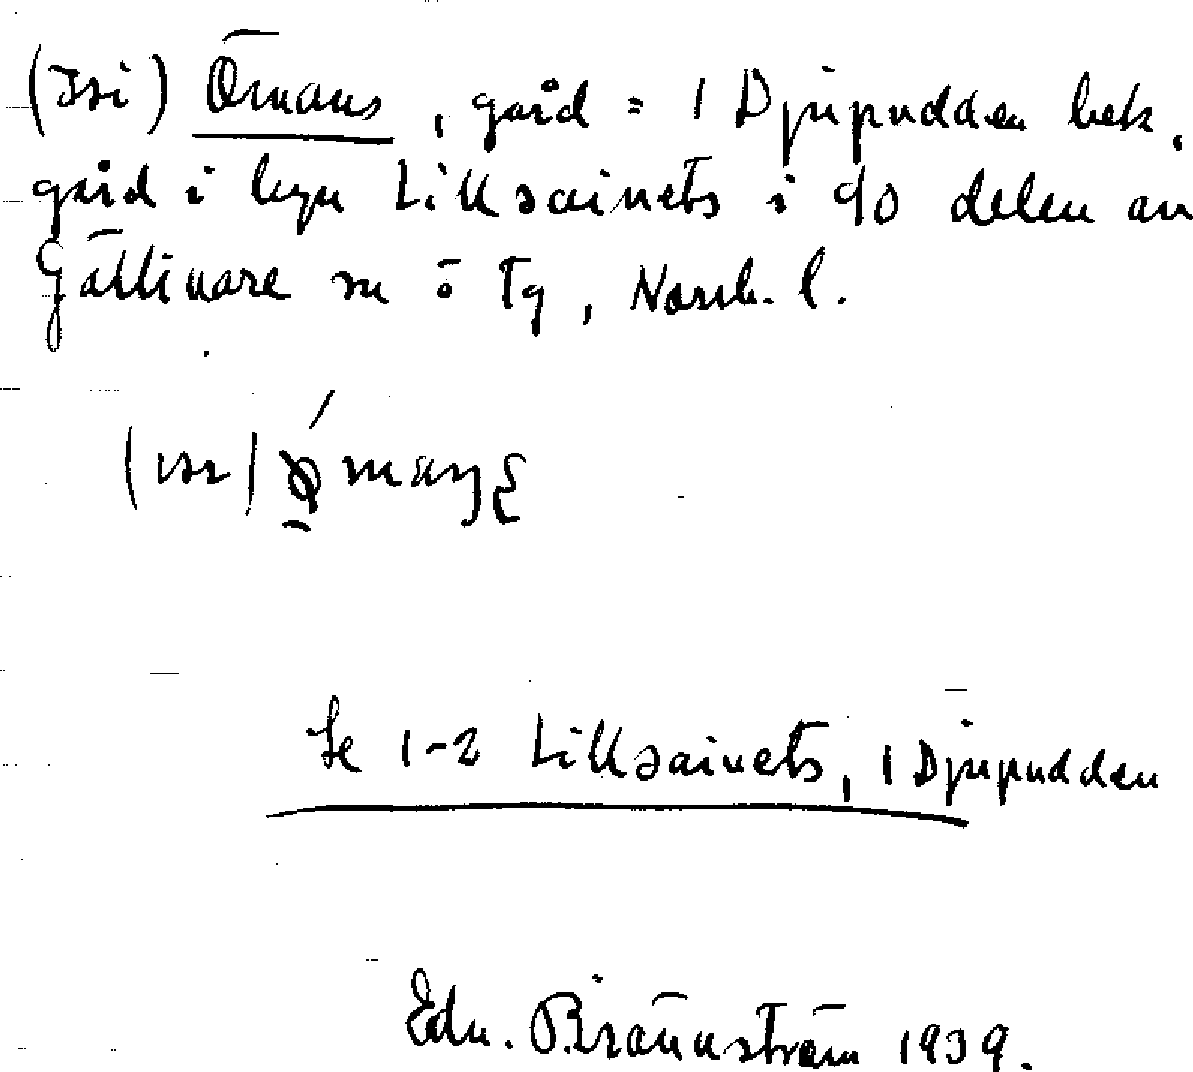 (Isi) Ömans, gård = 1 Djupudden bek.
gård i byn Lillsaivets i dö delen av
Gällivare sn ö Tg, Norrb. l.
Se 1-2 Lillsaivets, 1 Djupudden
Edv. Brännström 1939.